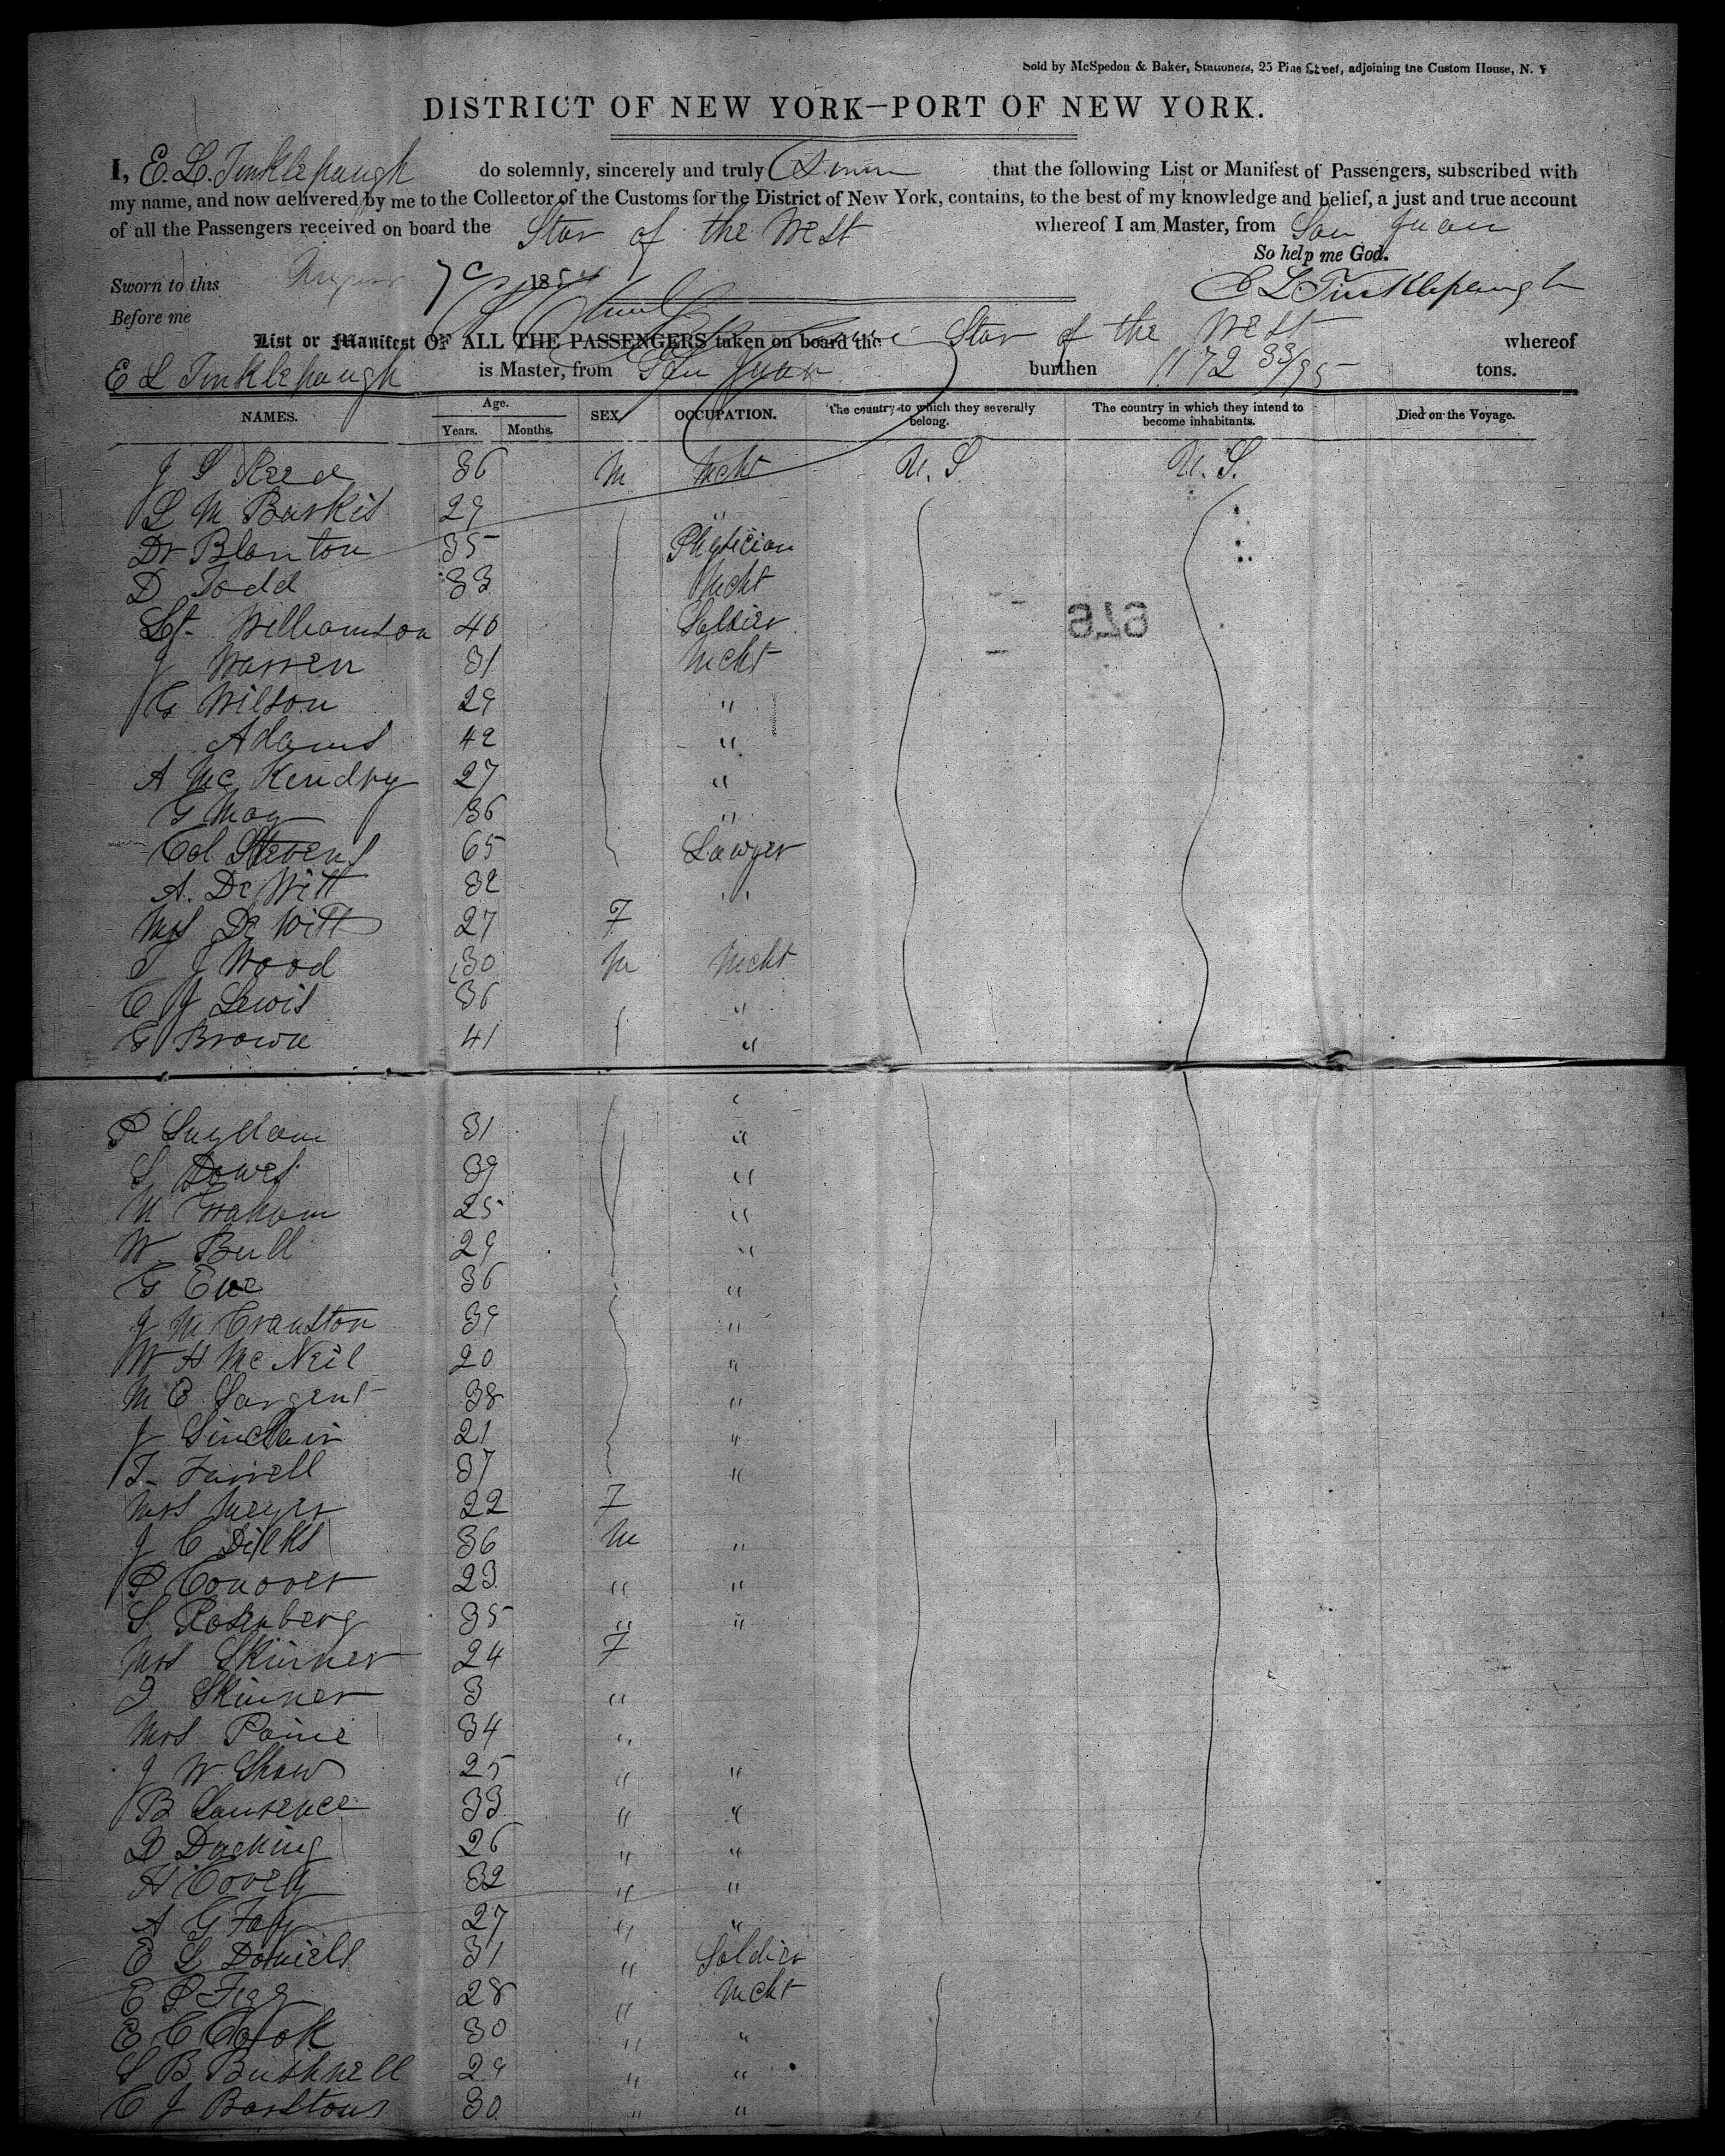 Sold by McSpedon & Baker, Stationers, 25 Pine Street, adjoining the Custom House, N. Y
DISTRICT OF NEW YORK—PORT OF NEW YORK.
I, E. L. Tinklepaugh do solemnly, sincerely and truly Swear that the following List or Manifest of Passengers, subscribed with
my name, and now delivered by me to the Collector of the Customs for the District of New York, contains, to the best of my knowledge and belief, a just and true account
of all the Passengers received on board the Star of the West whereof I am Master, from San Juan
So help me God.
Sworn to this August 185 E L Tinklepaugh
Before me
List or Manifest OF ALL THE PASSENGERS taken on board the Star of the West whereof
E L Tinklepaugh is Master, from San Juan burthen 1172 33/95 tons.
NAMES. Age. Years. Months. SEX OCCUPATION. The country to which they severally belong. The country in which they intend to become inhabitants. Died on the Voyage.
J S Reed 36 M Mcht U. S U. S.
L M Baskis 29 "
Dr Blanton 35 Physician
D Todd 33 Mcht
Lt. Williamson 40 Soldier
J Warren 31 Mcht
G Wilson 29 "
Adams 42 "
A McKendry 27 "
G May 36 "
Col Stevens 65 Lawyer
A. De Witt 32 "
Mrs De Witt 27 F
T J Wood 30 M Mcht
C J Lewis 36 "
G Brown 41 "
P Suydam 31 "
S Dowes 39 "
M Graham 25 "
W. Bull 29 "
G Eve 36 "
J M Cranston 39 "
W H McNeil 20 "
M C Sargent 38 "
J Sinclair 21 "
T. Farrell 37 "
Mrs Meyer 22 F
J C Dilks 36 M "
P Conover 23 " "
S. Rosenberg 35 " "
Mrs Skinner 24 F
J Skinner 3 "
Mrs Paine 34 "
J W Shaw 25 " "
B Lawrence 33 " "
D Ducking 26 " "
H Covely 32 " "
A G Fay 27 " "
E L Daniels 31 " Soldier
E P Figg 28 " Mcht
E C Cook 30 " "
S B Bushnell 29 " "
C J Barstow 30 " "